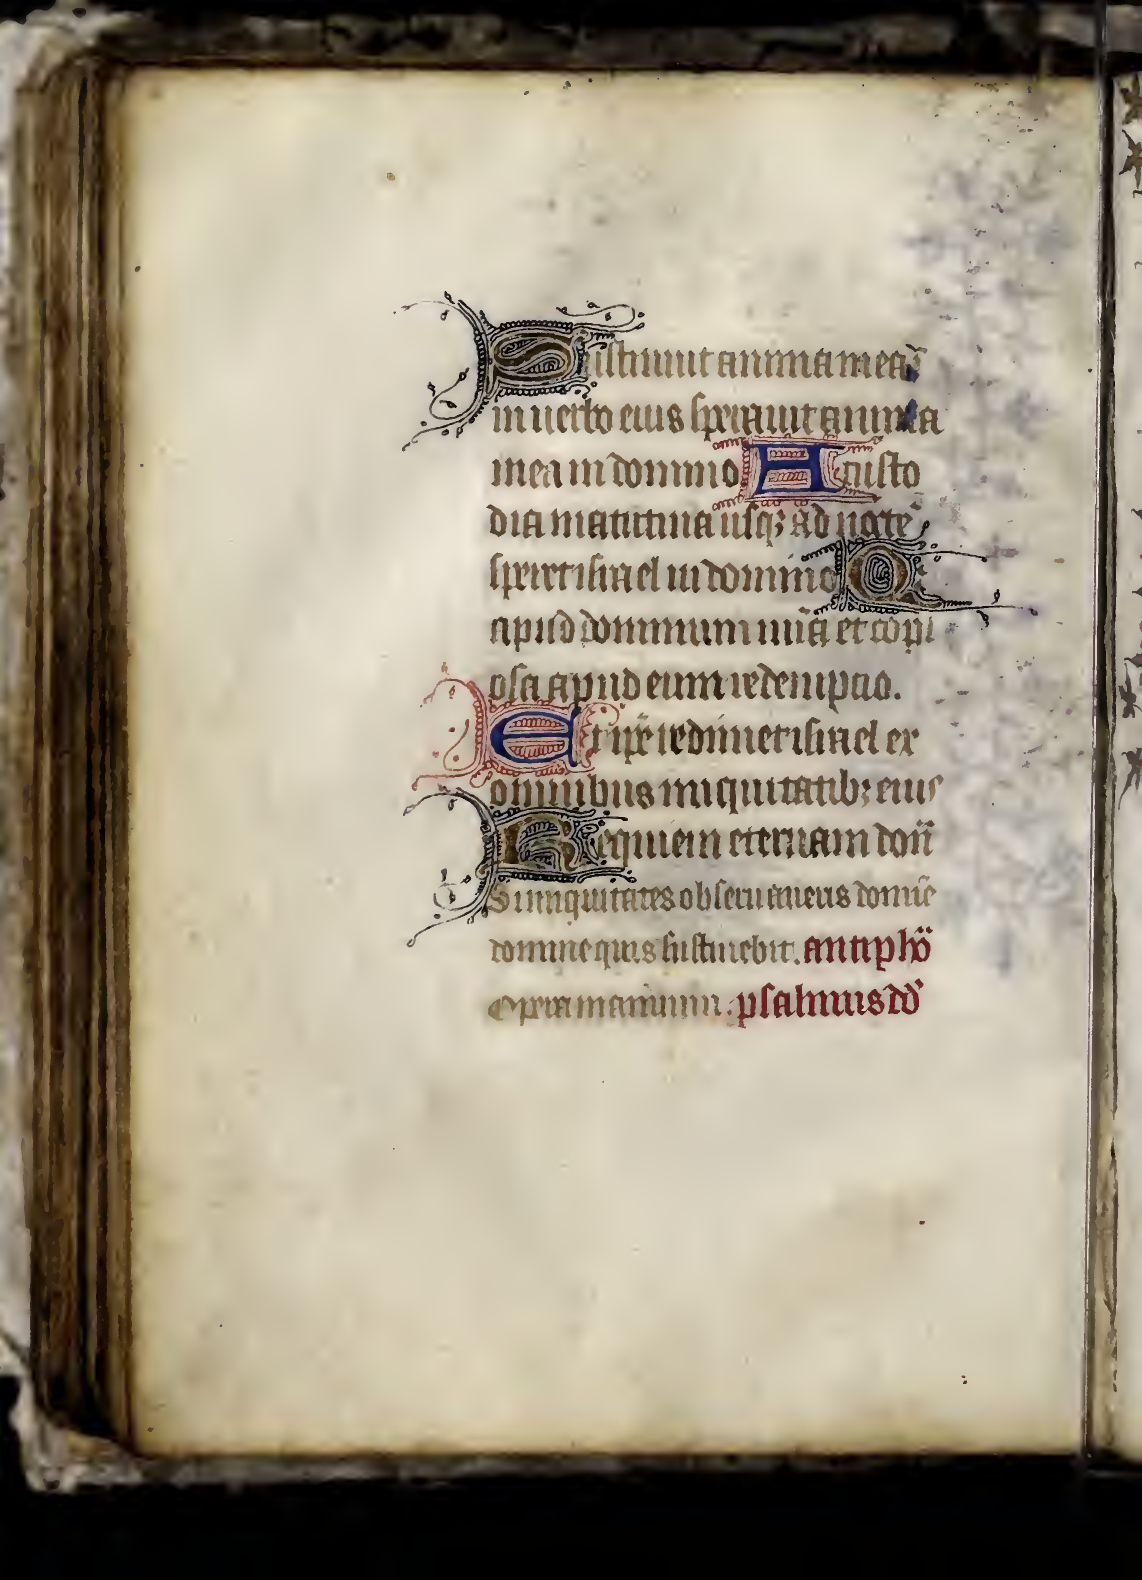 Sustinuit anima meã
in uerbo eius sperauit anima
mea in domino A custo
dia matutina usqꝫ ad noctẽ
speret israel in domino Q
apud dominum mĩa et copi
osa apud eum redemptio.
Et ip̃e redimet israel ex
omnibus iniquitatibꝫ eius
Requiem eternam don̄
Si iniquitates obseruaueris domiẽ
domine quis sustinebit. antipho
Opera manuum. psalmus dd̾